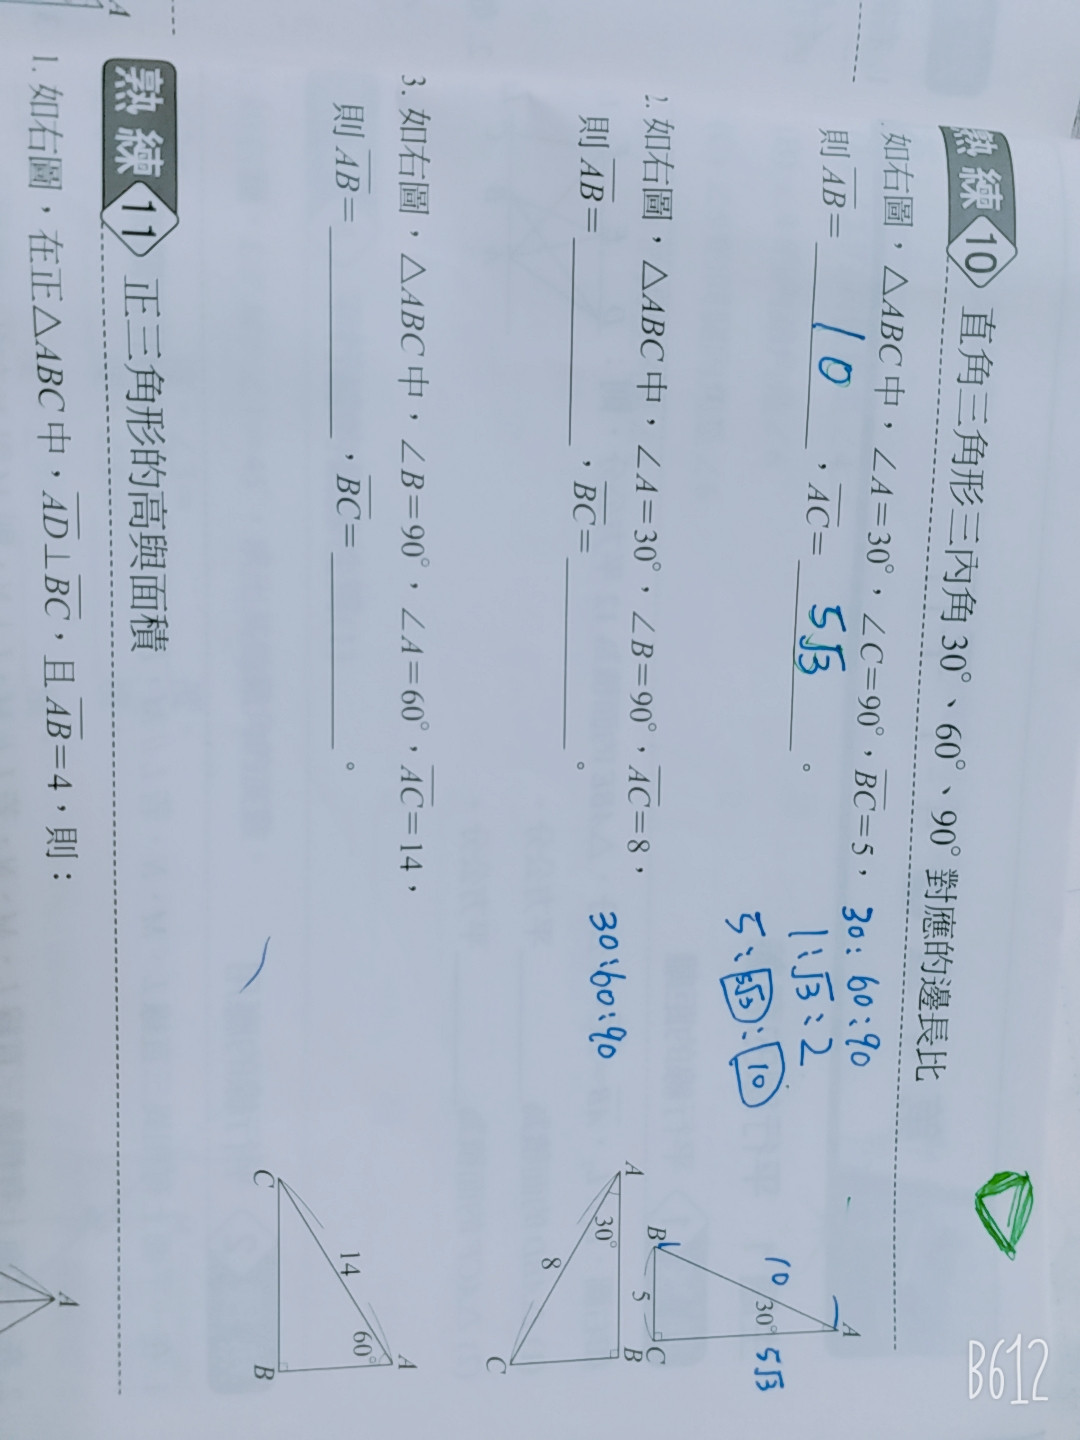 熟練 10 直角三角形三內角 30°、60°、90° 對應的邊長比
. 如右圖，△ABC 中，∠A=30°，∠C=90°，BC=5，
則 AB= 10 ，AC= 5√3 。
30:60:90
1:√3:2
5:5√3:10
A
10
30°
5√3
B
5
C
2. 如右圖，△ABC 中，∠A=30°，∠B=90°，AC=8，
則 AB= ，BC= 。
30:60:90
A
30°
B
8
C
3. 如右圖，△ABC 中，∠B=90°，∠A=60°，AC=14，
則 AB= ，BC= 。
A
60°
14
C
B
熟練 11 正三角形的高與面積
1. 如右圖，在正△ABC 中，AD⊥BC，且 AB=4，則：
A
A
B612